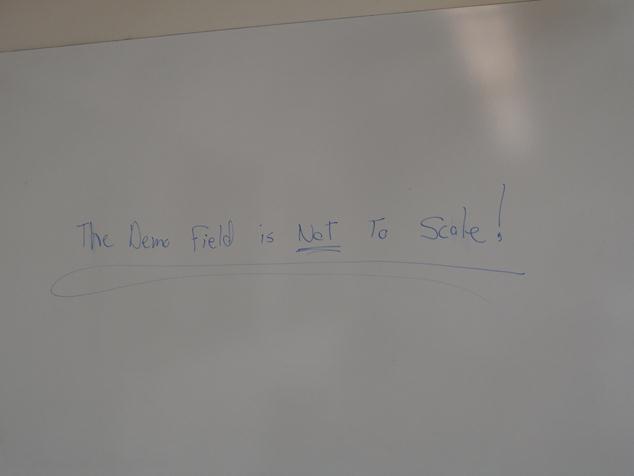 The Demo Field is Not To Scale!